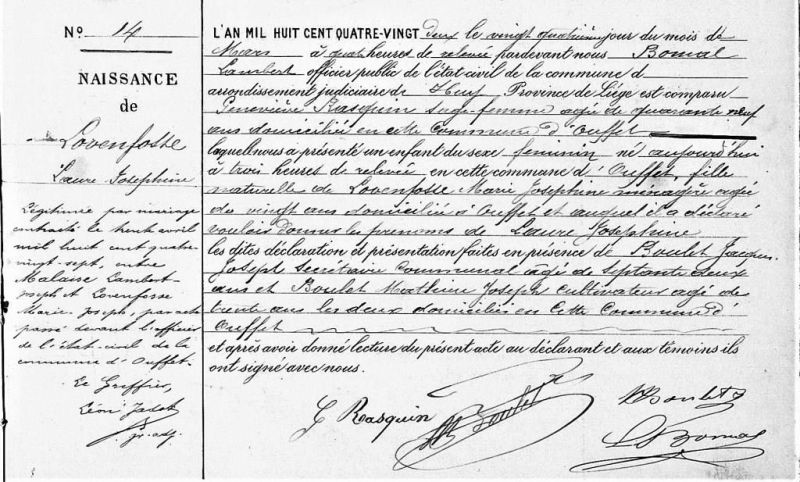 N° 14
NAISSANCE
de
Lovenfosse
Laure Josephine
Légitimée par mariage
contracté le trente avril
mil huit cent quatre-
vingt-sept, entre
Malaise Lambert-
Joseph et Lovenfosse
Marie-Joseph, par acte
passé devant l'officier
de l'état-civil de la
commune d'Ouffet.
Le Greffier,
Léon Jadot
gr. adj.
L'AN MIL HUIT CENT QUATRE-VINGT deux le vingt quatrième jour du mois de
Mars à quatre heures de relevée pardevant nous Bomal
Lambert officier public de l'état civil de la commune d
arrondissement judiciaire de Huy Province de Liége est comparu
Geneviève Rasquin sage-femme agée de quarante neuf
ans domiciliée en cette Commune d'Ouffet
laquelle nous a présenté un enfant du sexe feminin né aujourd'hui
à trois heures de relevée en cette commune d'Ouffet, fille
naturelle de Lovenfosse Marie Josephine ménagère agée
de vingt ans domiciliée à Ouffet et auquel il a déclaré
vouloir donner les prénoms de Laure Josephine
les dites déclaration et présentation faites en présence de Boulet Jacques
Joseph secrétaire Communal agé de septante deux
ans et Boulet Mathieu Joseph cultivateur agé de
trente ans les deux domiciliés en cette Commune d'
Ouffet
et après avoir donné lecture du présent acte au déclarant et aux témoins ils
ont signé avec nous.
G Rasquin
Boulet
Boulet
L Bomal